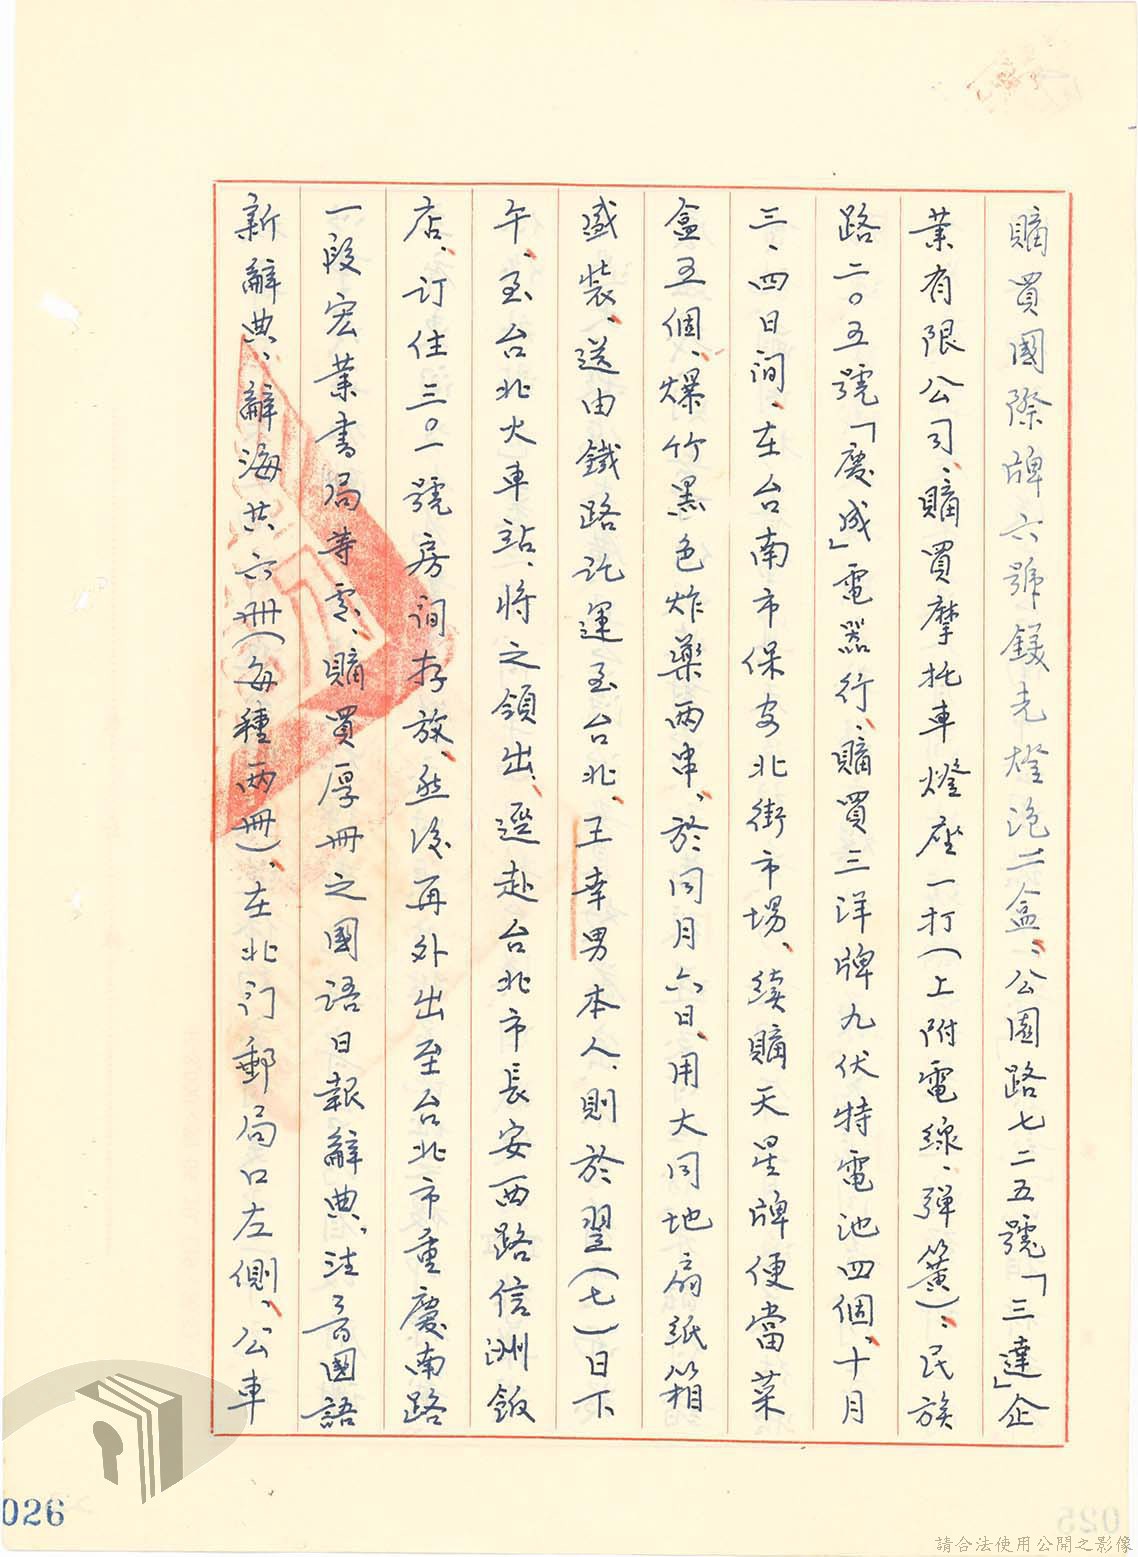 購買國際牌六號鎂光燈泡二盒、公園路七二五號「三達」企
業有限公司、購買摩托車燈座一打(上附電線、彈簧)、民族
路二〇五號「慶成」電器行、購買三洋牌九伏特電池四個、十月
三、四日間、在台南市保安北街市場、續購天星牌便當菜
盒五個、爆竹黑色炸藥两串、於同月六日、用大同地扇紙箱
盛裝、送由鐵路託運至台北、王幸男本人、則於翌(七)日下
午、至台北火車站、將之領出、逕赴台北市長安西路信洲飯
店、訂住三〇一號房间存放、然後再外出至台北市重慶南路
一段宏業書局等處、購買厚冊之國語日報辭典、注音國語
新辭典、辭海共六冊(每種两冊)、在北门郵局口左側、公車
026
025
請合法使用公開之影像